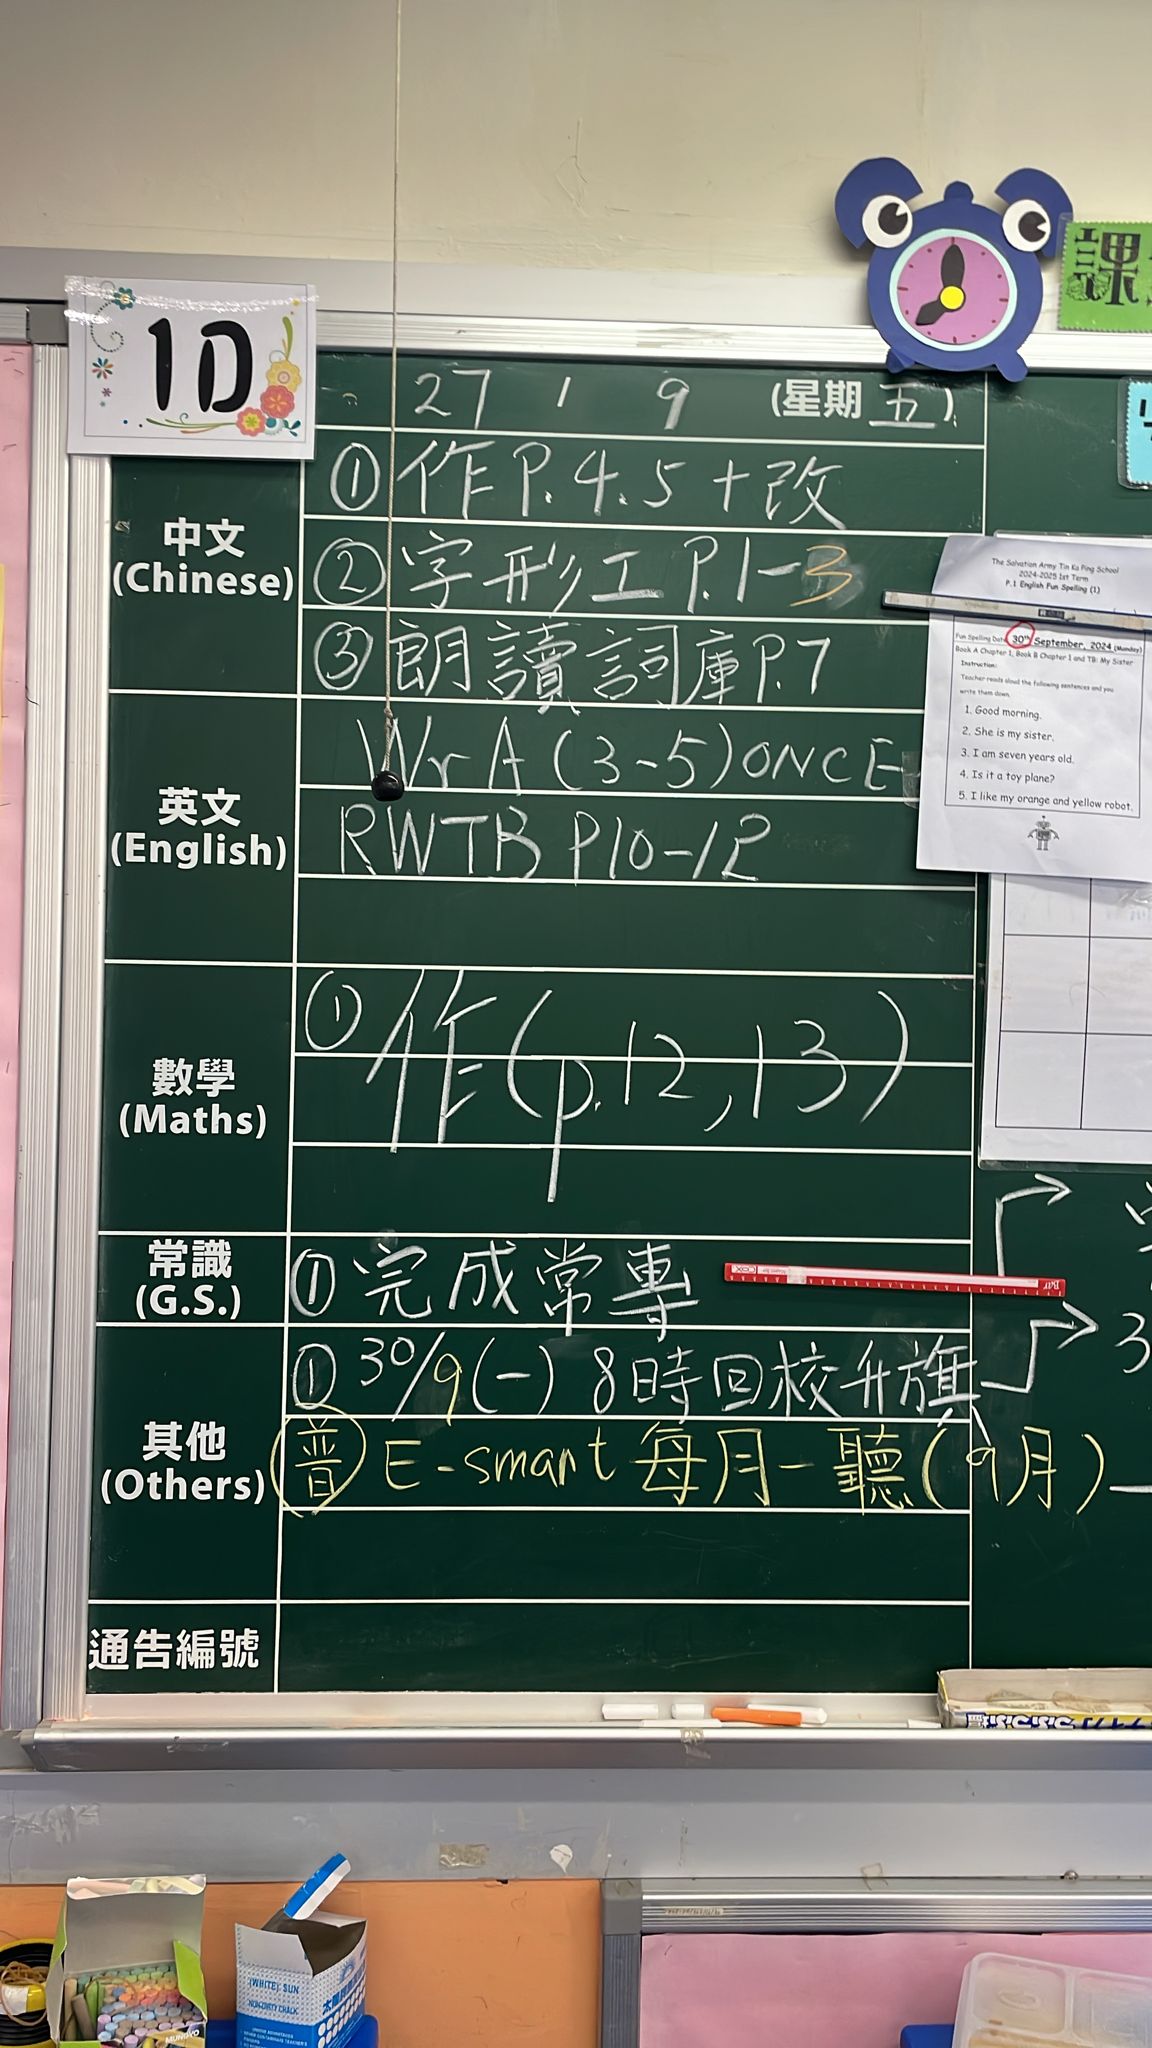 課
1D
27 / 9 (星期五)
中文
(Chinese)
①作P.4.5+改
②字形工P.1-3
③朗讀詞庫P.7
英文
(English)
WrA (3-5) ONCE
RWTB P10-12
數學
(Maths)
①作(p.12,13)
常識
(G.S.)
①完成常專
其他
(Others)
①30/9(一) 8時回校升旗
普 E-smart 每月一聽(9月)
通告編號
The Salvation Army Tin Ka Ping School
2024-2025 1st Term
P.1 English Fun Spelling (1)
Fun Spelling Date: 30th September, 2024 (Monday)
Book A Chapter 1, Book B Chapter 1 and TB: My Sister
Instruction:
Teacher reads aloud the following sentences and you
write them down.
1. Good morning.
2. She is my sister.
3. I am seven years old.
4. Is it a toy plane?
5. I like my orange and yellow robot.
3
(WHITE) SUN
NON-DIRTY CHALK
MUNGYO